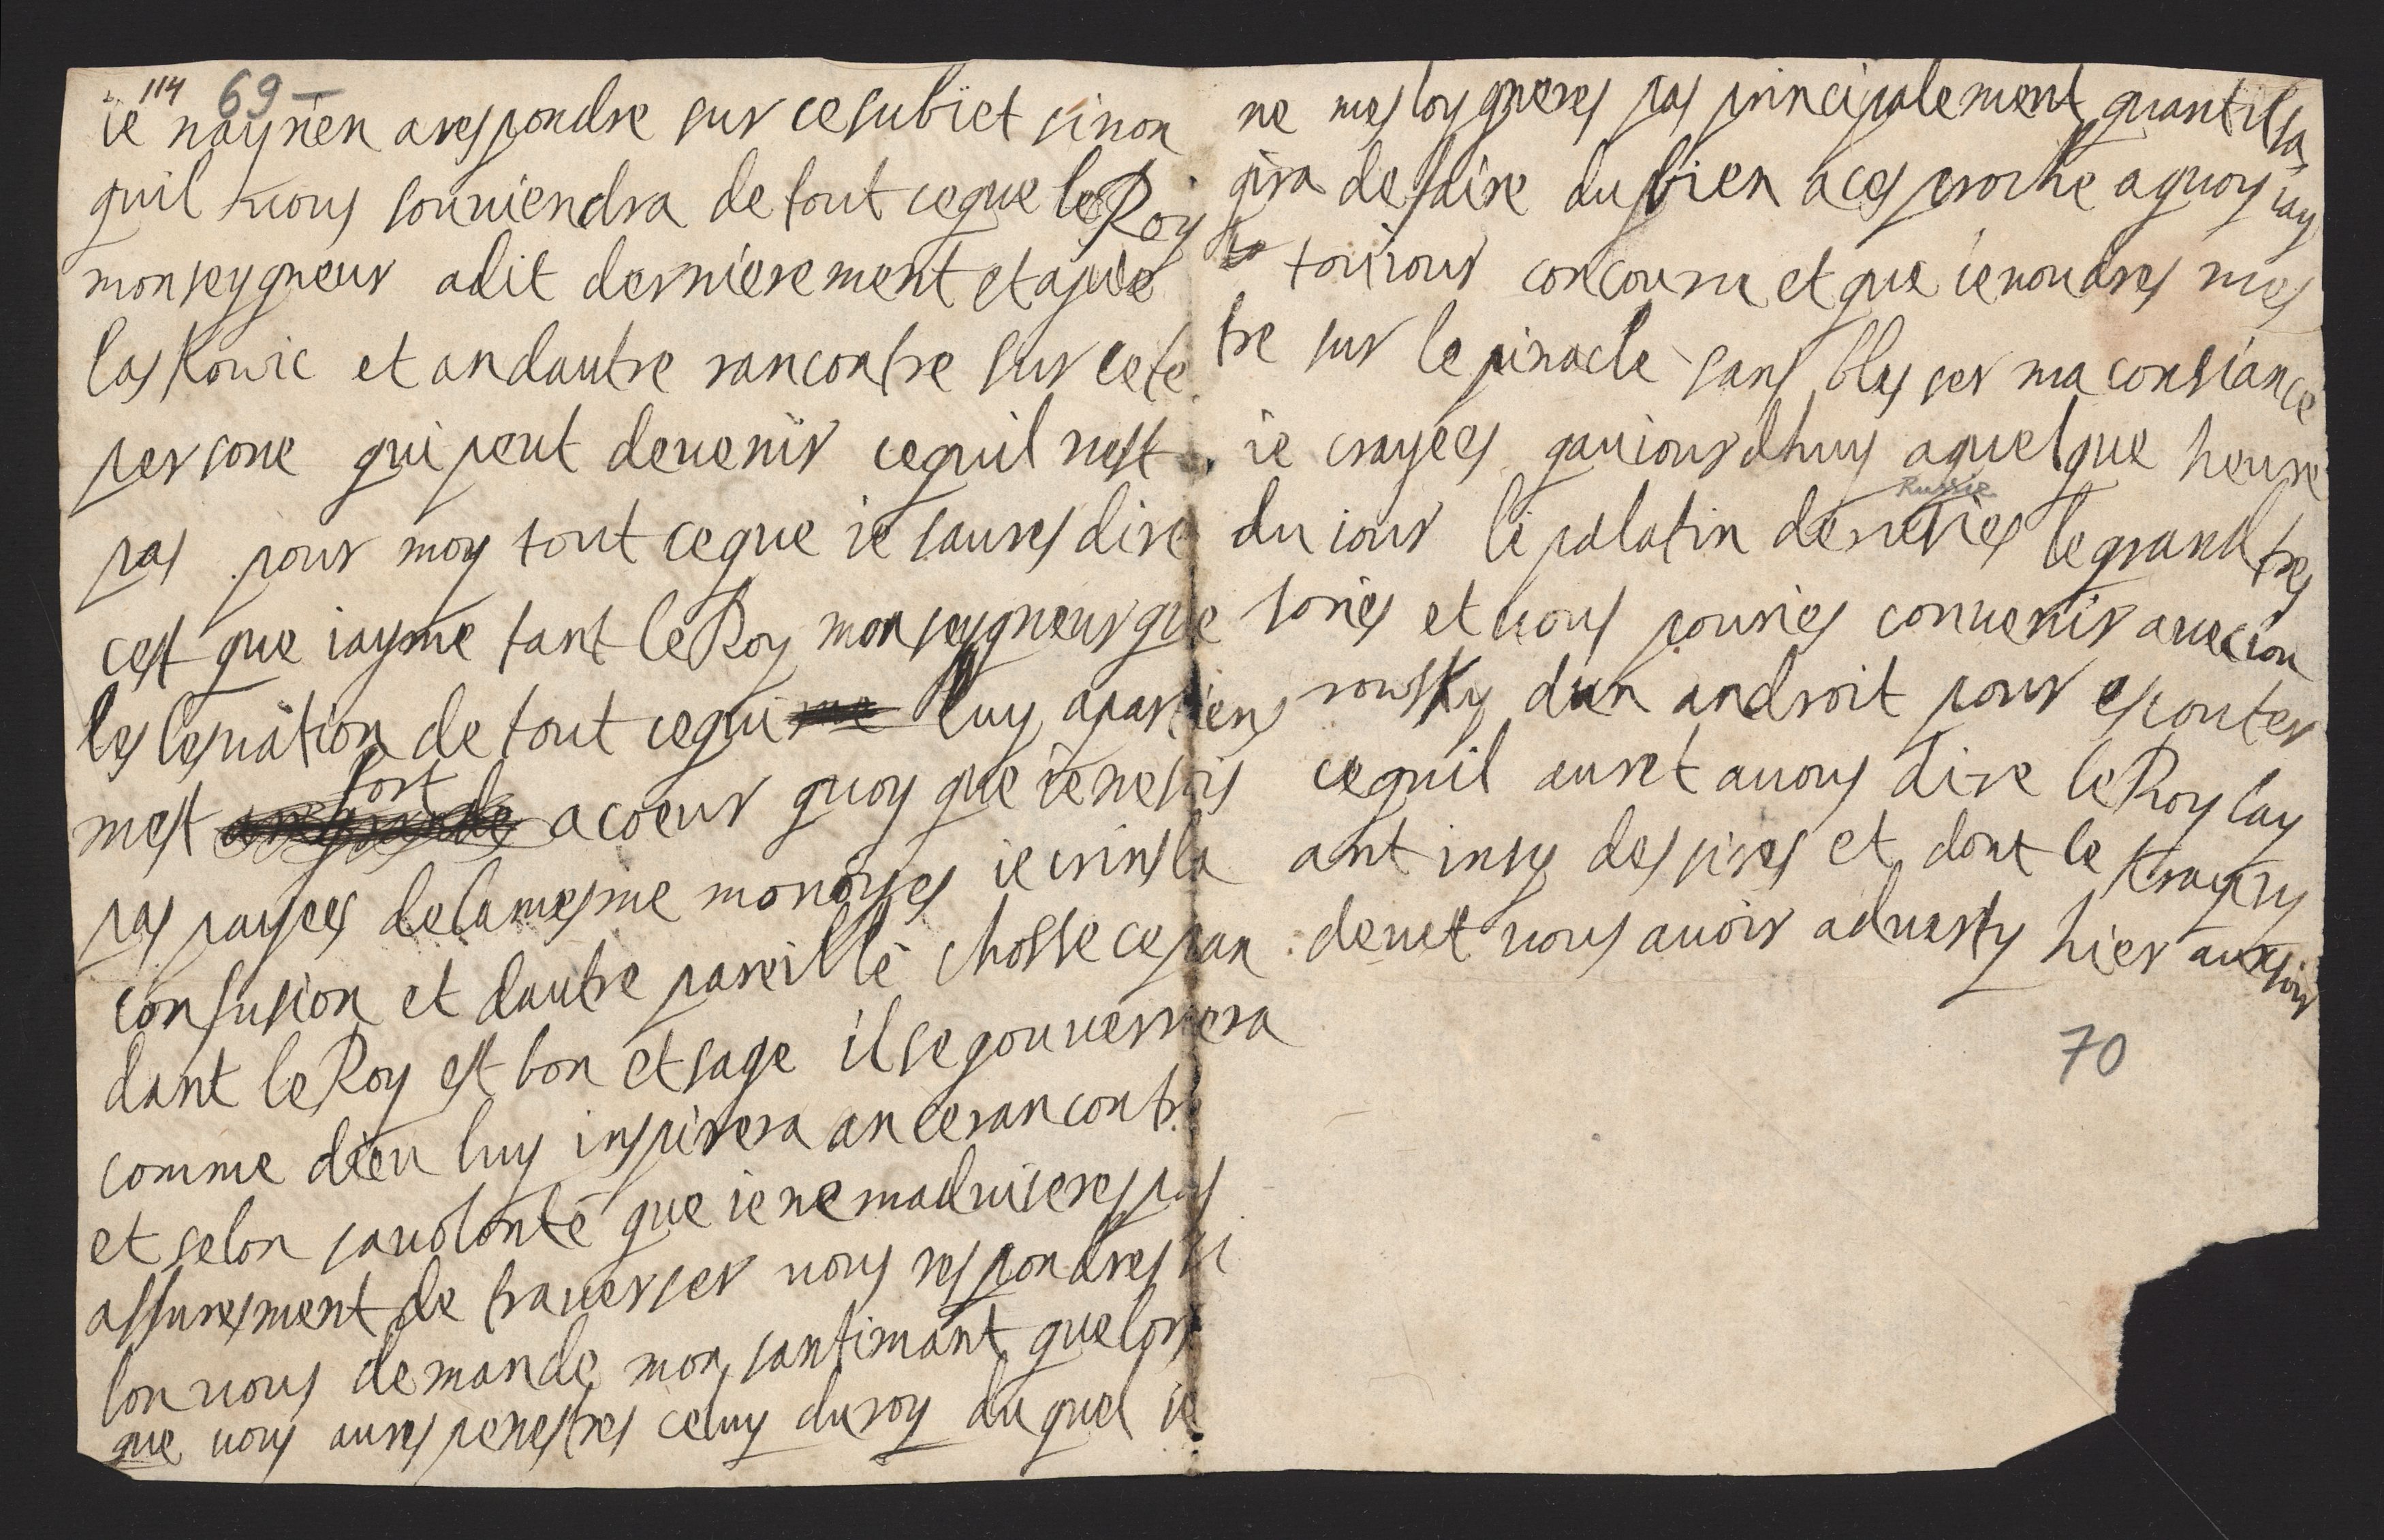 114 69-
ie nay rien a respondre sur ce subiet sinon
quil vous souuiendra de tout ce que le Roy
monseygneur a dit dernierement et a pie
laskowic et an dautre rancontre sur cete
persone qui peut deuenir ce quil nest
pas pour moy tout ce que ie saures dire
cest que iayme tant le Roy monseygneur que
les leuation de tout ce qui luy apartiens
mest fort a coeur quoy que ie ne sois
pas payees de la mesme monoyes ie crins la
confusion et dautre pareille chosse cepan
dant le Roy est bon et sage il se gouuernera
comme dieu luy inspirera an ce rancontre
et selon sa uolonte que ie ne maduiseres pas
assuresment de trauerser uous respondres si
lon uous demande mon santimant que lors
que uous aures penestres celuy du roy du quel ie
ne mesloygneres pas principalement quant il sa
gira de faire du bien a ces proche a quoy iay
touiour concouru et que ie uoudres mes
tre sur le pinacle sans blesser ma consiance
ie crayees quauiourdhuy a quelque heure
Russie
du iour le palatin de rusies le grand tres
sories et uous pouries conuenir auec ion
rowsky dun androit pour escouter
ce quil auret a uous dire le Roy lay
ant insy dessires et dont le
deuet uous auoir aduerty hier au soir
70